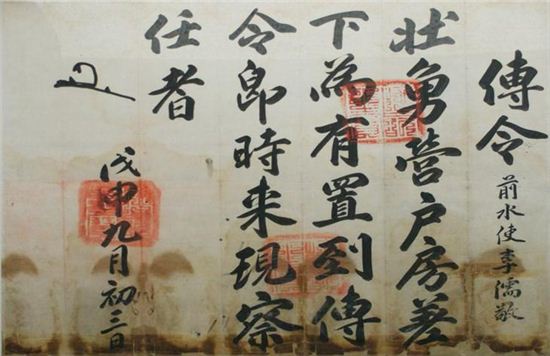 傳令 前水使李濡敬
壯勇營户房差
下為有置到傳
令卽時来現察
任者
戊申九月初三日